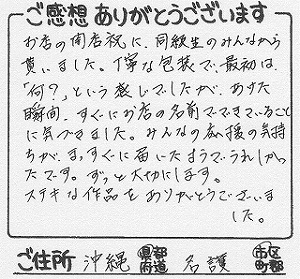 ご感想 ありがとうございます
お店の開店祝に、同級生のみんなから
貰いました。丁寧な包装で、最初は
「何？」という感じでしたが、あけた
瞬間、すぐにお店の名前でできていること
に気づきました。みんなの応援の気持
ちが、まっすぐに届いたようでうれしかっ
たです。ずっと大切にします。
ステキな作品をありがとうございま
した。
ご住所 沖縄 都道府県 名護 市区町郡